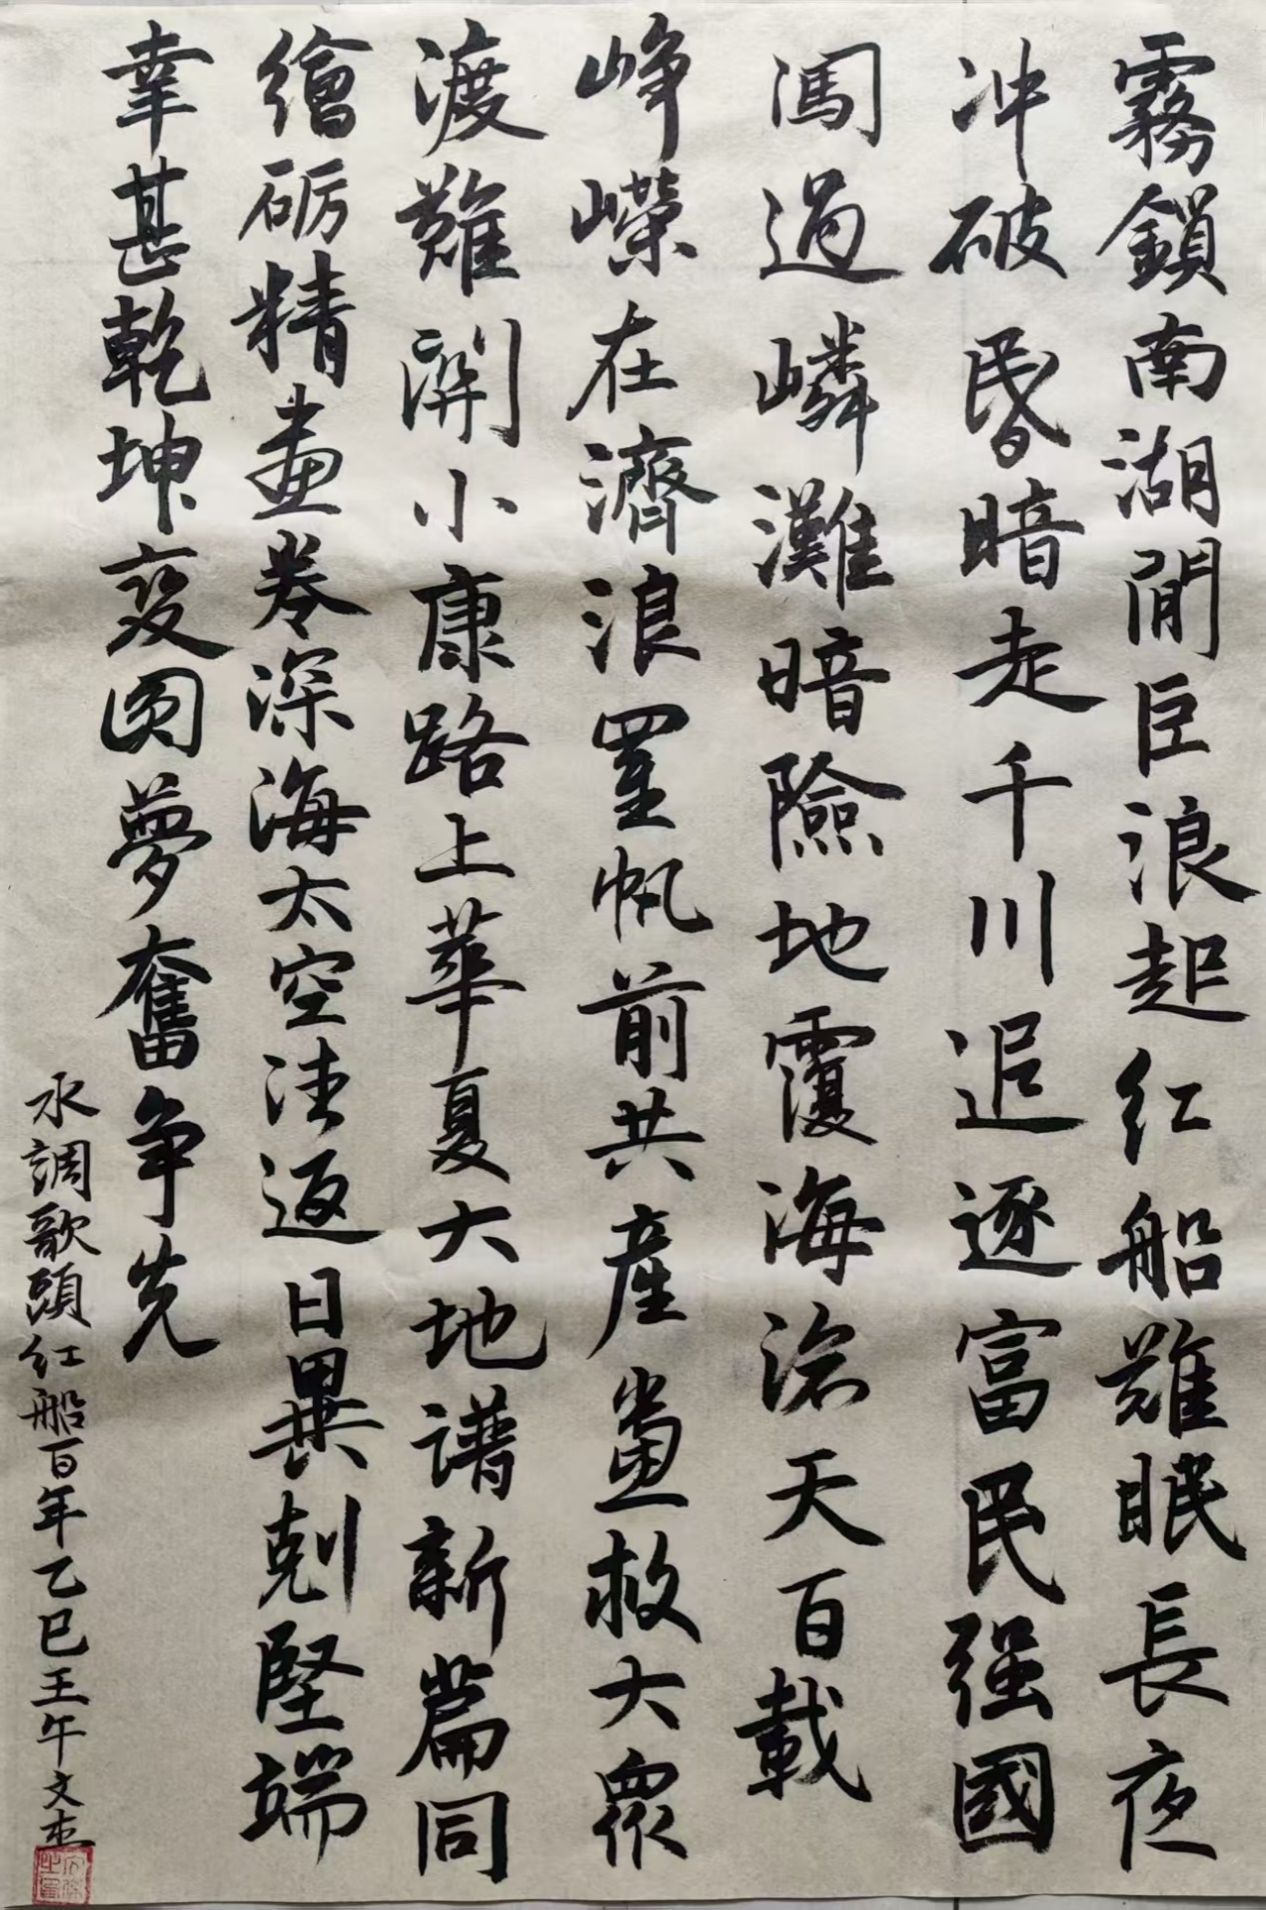 霧鎖南湖閒巨浪起红船難眠長夜
冲破昏暗走千川追逐富民强國
闯過嶙灘暗險地覆海滄天百載
崢嶸在濟浪罣帆前共產盡救大眾
渡難関小康路上華夏大地譜新篇同
繪砺精畫卷深海太空往返日異剋堅端
幸甚乾坤变圆夢奮争先
水調歌頭红船百年乙巳王午文